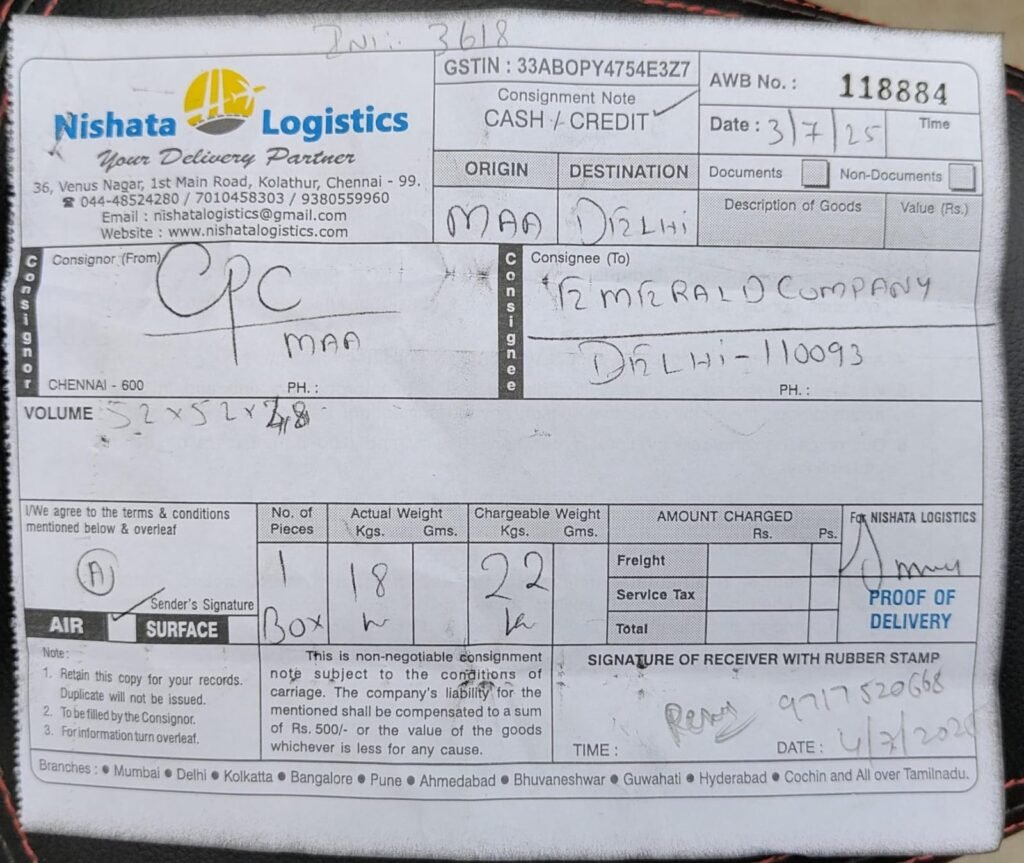 INV:- 3618
Nishata Logistics
Your Delivery Partner
36, Venus Nagar, 1st Main Road, Kolathur, Chennai - 99.
☎ 044-48524280 / 7010458303 / 9380559960
Email : nishatalogistics@gmail.com
Website : www.nishatalogistics.com
GSTIN : 33ABOPY4754E3Z7
Consignment Note
CASH / CREDIT ✓
AWB No. : 118884
Date : 3/7/25 Time
ORIGIN DESTINATION
MAA DELHi
Documents Non-Documents
Description of Goods Value (Rs.)
Consignor
Consignor (From)
CPC
MAA
CHENNAI - 600 PH. :
Consignee
Consignee (To)
EMERALD COMPANY
DELHi - 110093
PH. :
VOLUME 52 x 52 x
I/We agree to the terms & conditions
mentioned below & overleaf
A
Sender's Signature
AIR ✓ SURFACE
No. of Pieces
1
Box
Actual Weight
Kgs. Gms.
18
Chargeable Weight
Kgs. Gms.
22
AMOUNT CHARGED
Rs. Ps.
Freight
Service Tax
Total
For NISHATA LOGISTICS
PROOF OF
DELIVERY
Note :
1. Retain this copy for your records.
Duplicate will not be issued.
2. To be filled by the Consignor.
3. For information turn overleaf.
This is non-negotiable consignment
note subject to the conditions of
carriage. The company's liability for the
mentioned shall be compensated to a sum
of Rs. 500/- or the value of the goods
whichever is less for any cause.
SIGNATURE OF RECEIVER WITH RUBBER STAMP
9717520668
TIME : DATE : 4/7/2025
Branches : ● Mumbai ● Delhi ● Kolkatta ● Bangalore ● Pune ● Ahmedabad ● Bhuvaneshwar ● Guwahati ● Hyderabad ● Cochin and All over Tamilnadu.